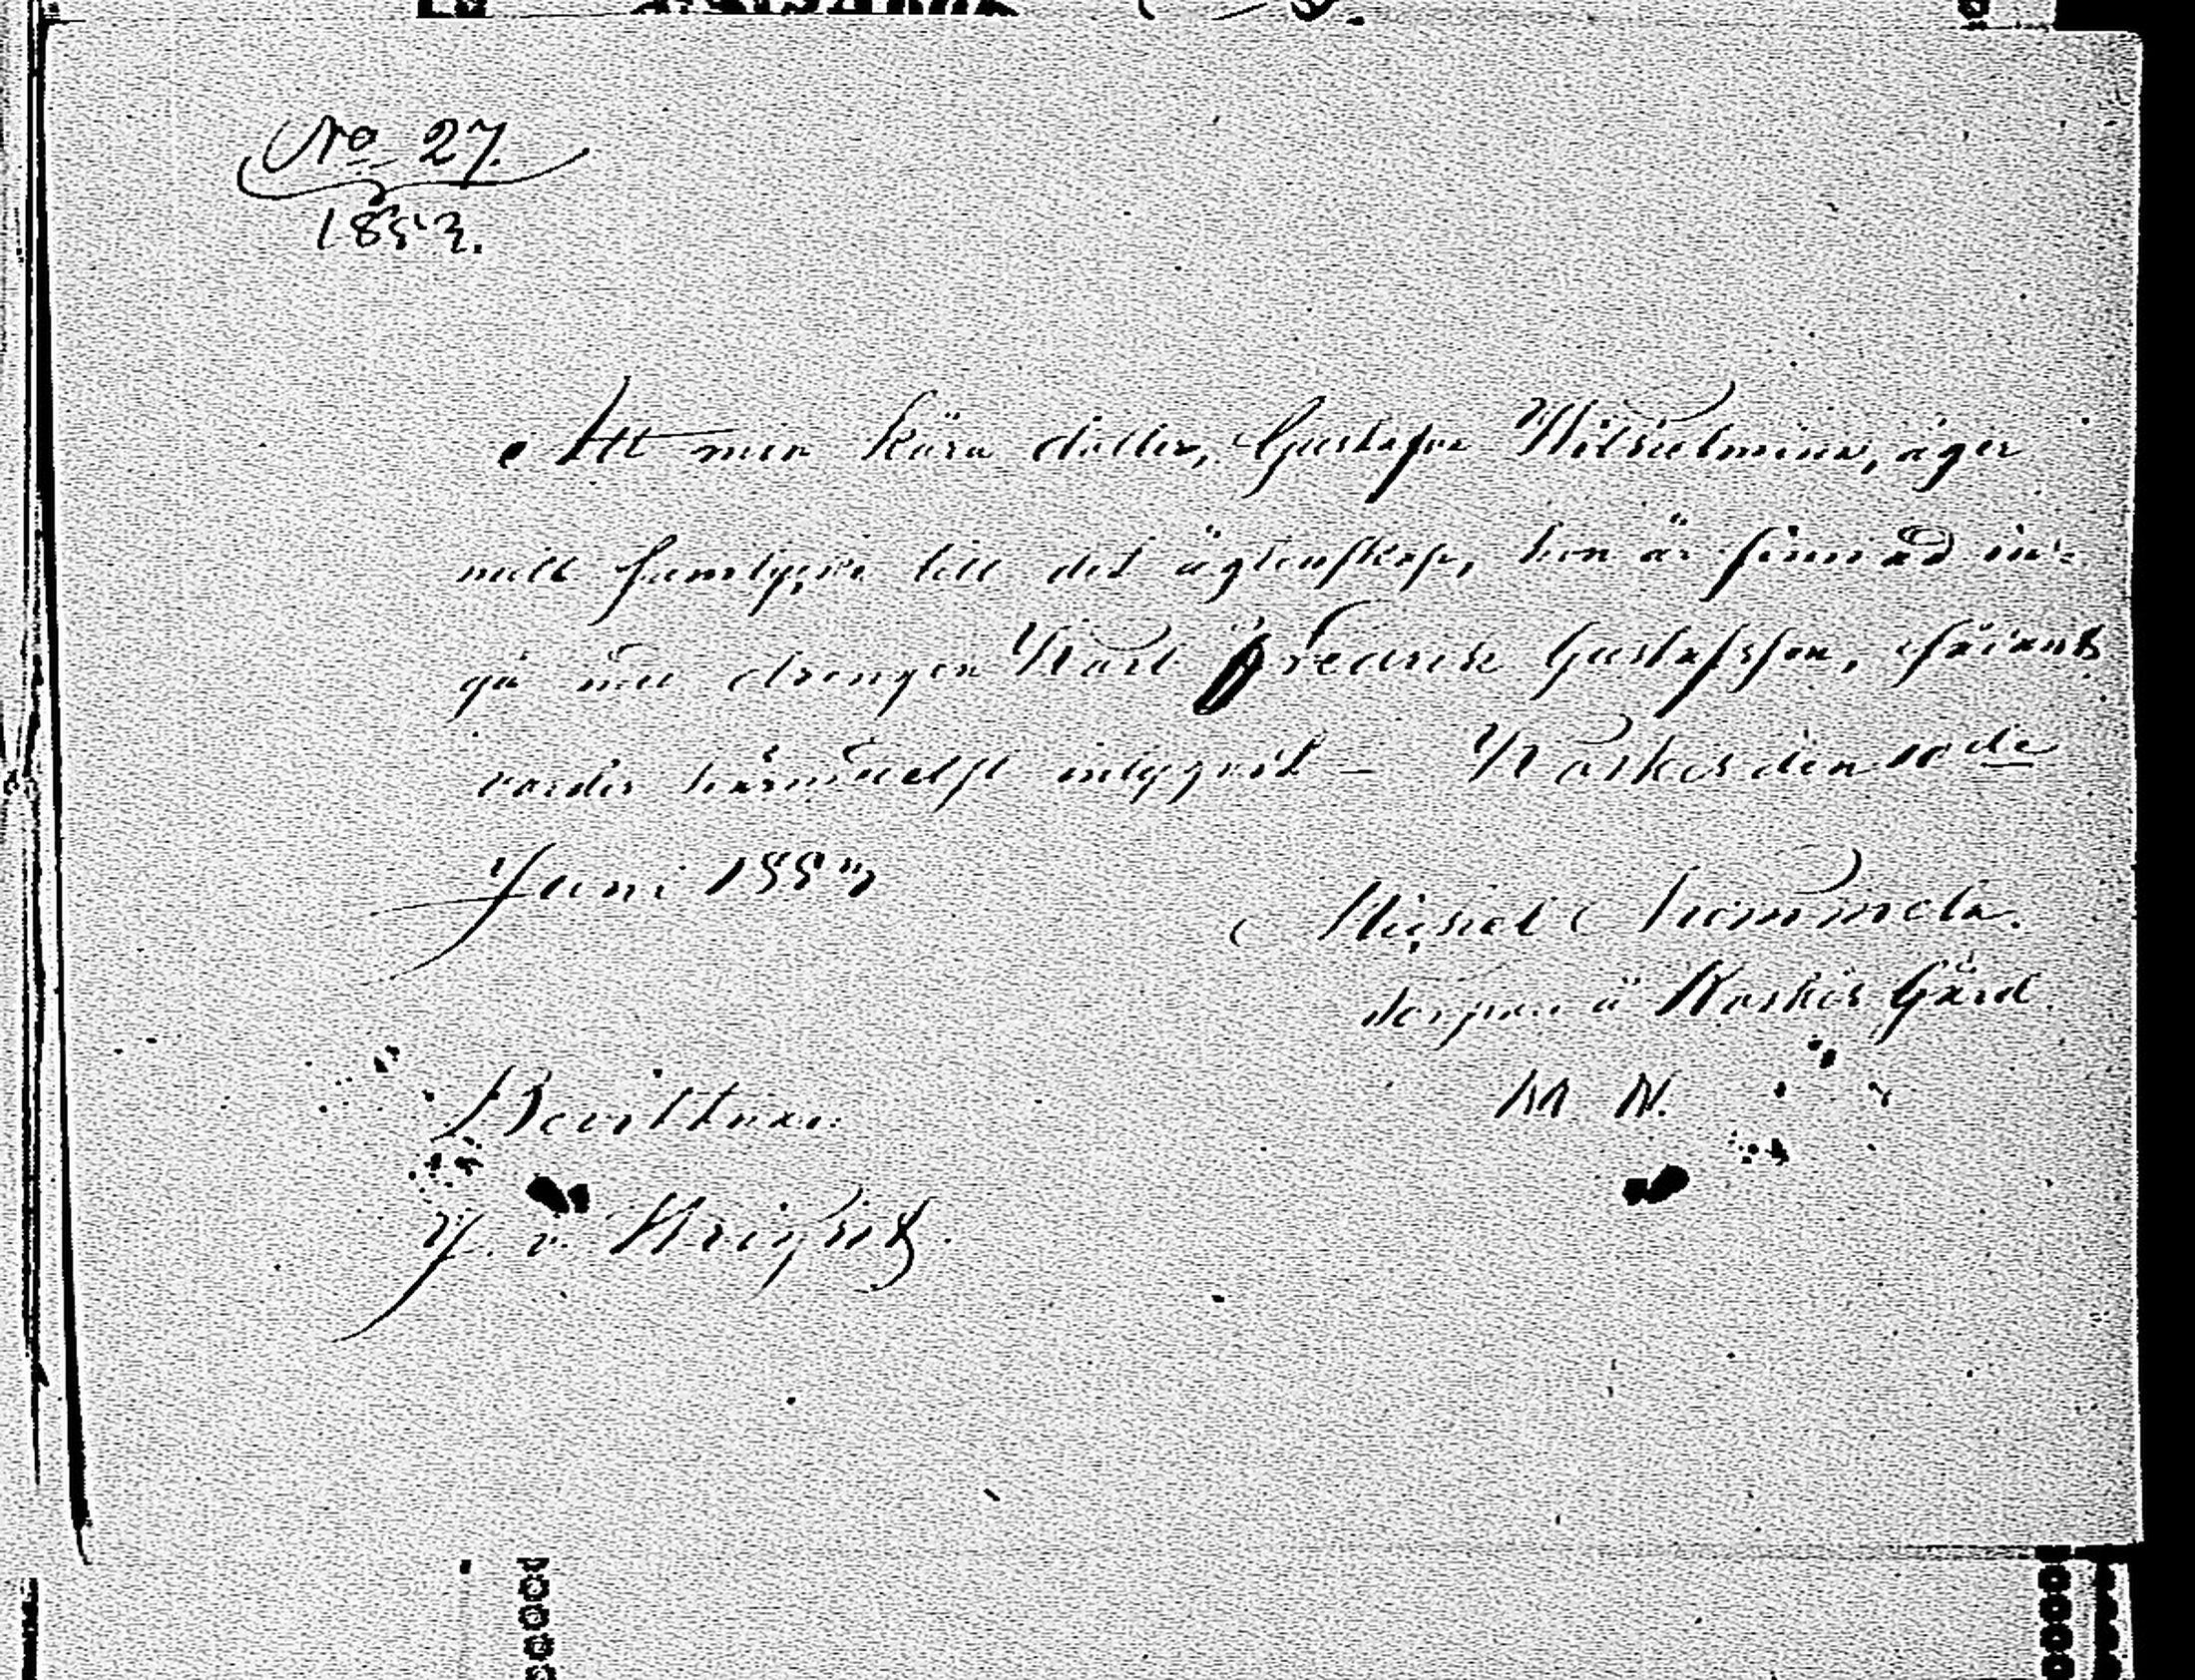 No 27.
1853.
Att min kära dotter, Gustafva Wilhelmina, äger
mitt samtycke till det ägtenskap, hon är sinnad in-
gå med drengen Karl Fredrick Gustafsson, sådant
varder härmedelst intygadt – Koskis den 10de
Juni 1853
Michel Nummela.
torpare å Koskis Gård.
M. N.
Bevittnar
J. v. Wright.